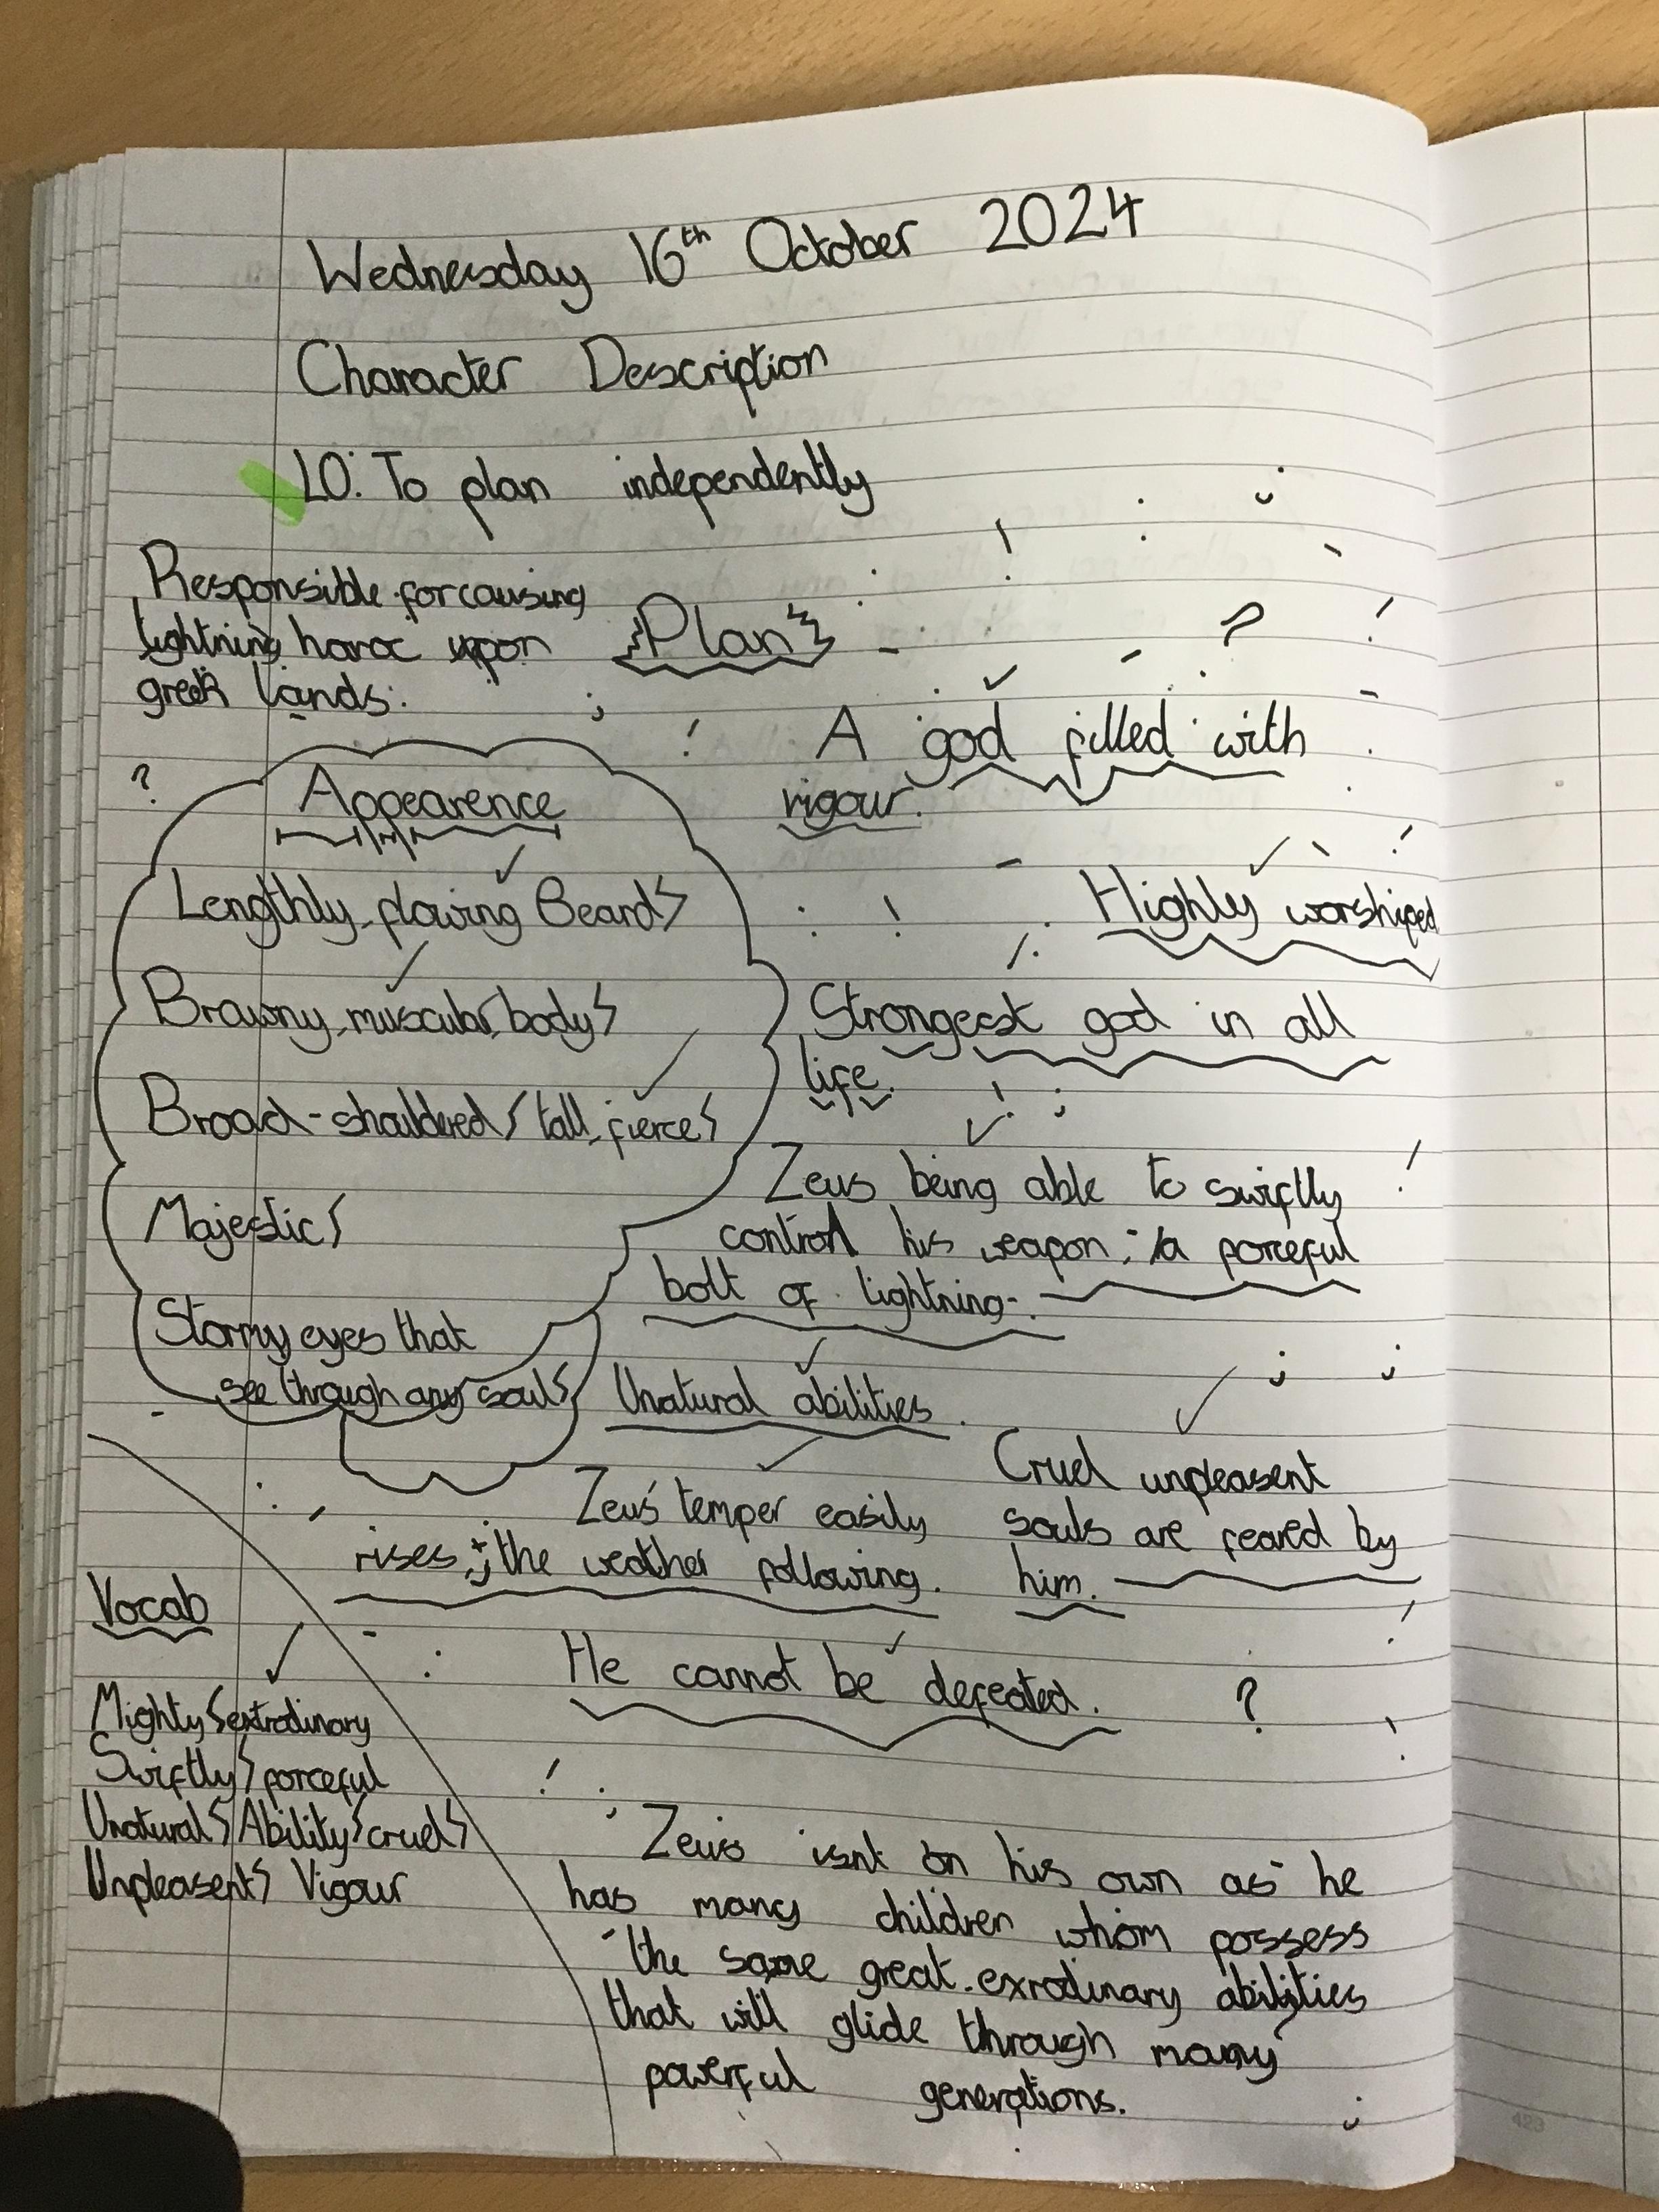 Wednesday 16th October 2024
Character Description
LO: To plan independently
Responsible for causing
lightning havoc upon
greek lands.
Plan
A god filled with
rigour.
Highly worshiped
Strongest god in all
life.
Zeus being able to swiftly
control his weapon; a forceful
bolt of lightning.
Unatural abilities.
Zeus' temper easily
rises; the weather following.
Cruel unpleasent
souls are feared by
him.
He cannot be defeated.
Zeus isnt on his own as he
has many children whom possess
the same great exrodinary abilities
that will glide through many
powerful generations.
Appearence
Lengthly, flowing Beard
Brawny, muscular body
Broad-shouldered / tall, fierce
Majestic
Stormy eyes that
see through any soul
Vocab
Mighty extrodinary
Swiftly forceful
Unatural Ability cruel
Unpleasent Vigour